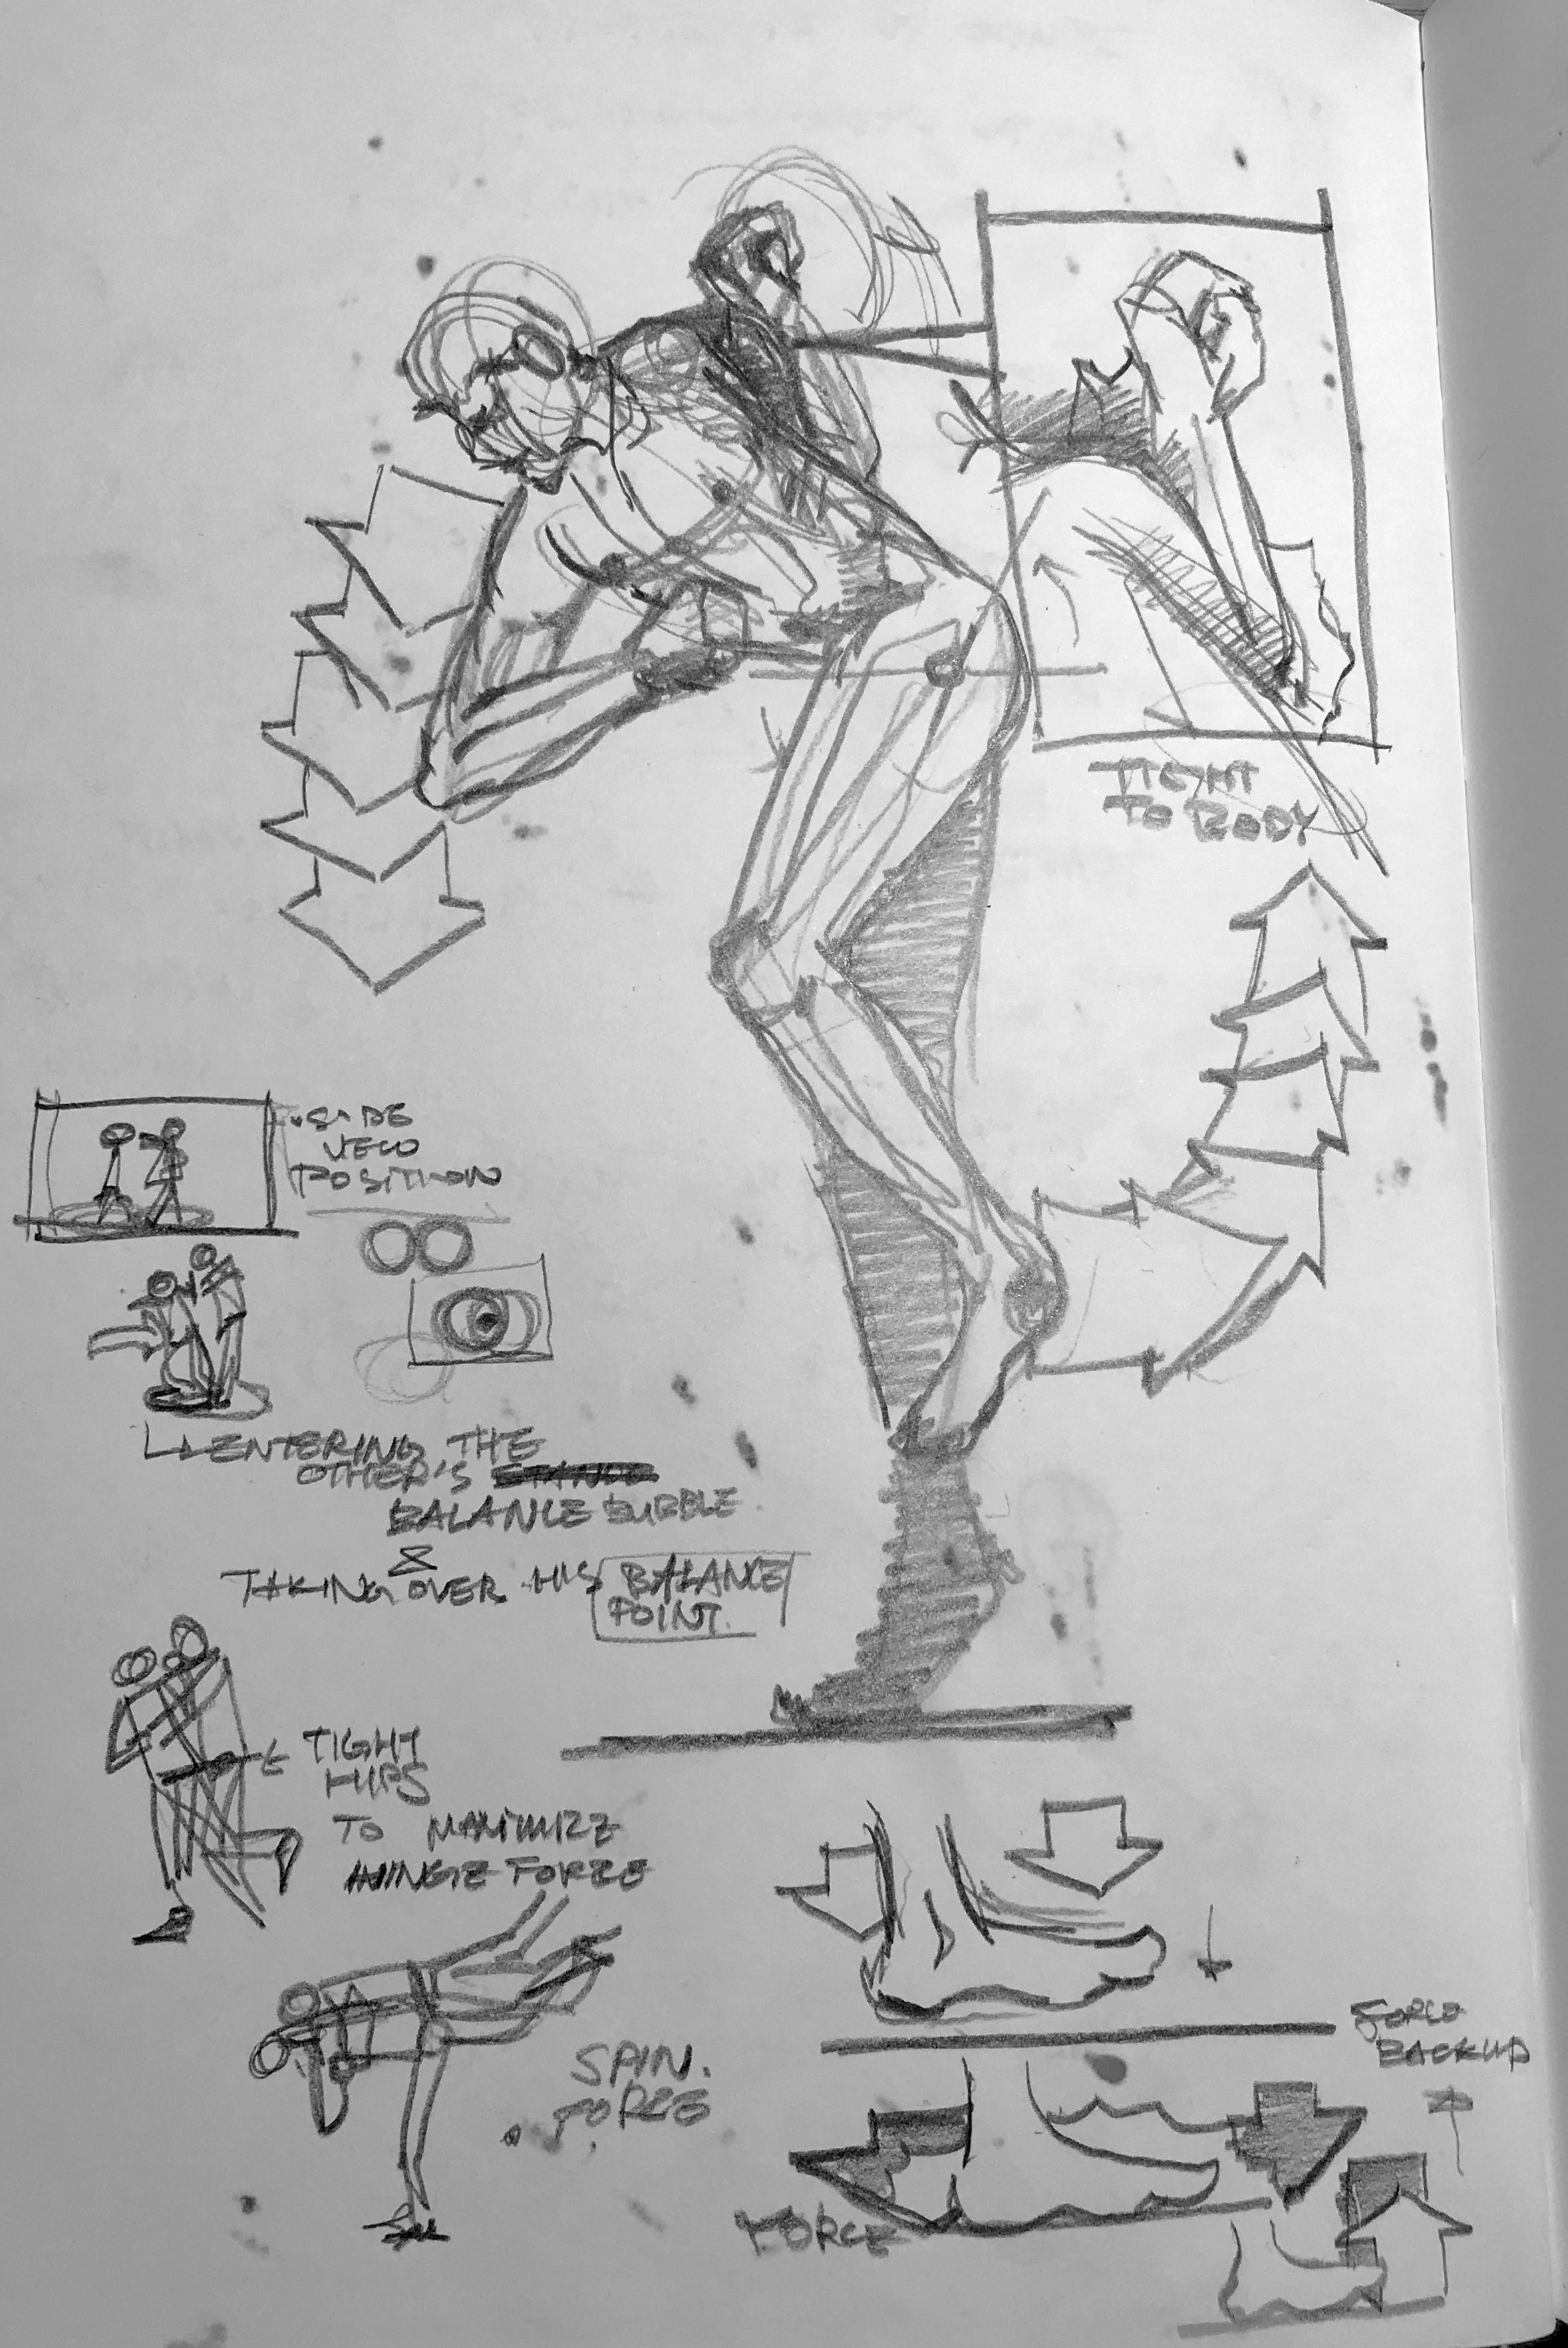 TIGHT
TO BODY
SIDE
POSITION
ENTERING THE
OTHER'S STANCE
BALANCE BUBBLE
&
TAKING OVER HIS BALANCE
POINT.
TIGHT
HIPS
TO MAXIMIZE
HINGE FORCE
SPIN.
FORCE
FORCE
BACKUP
FORCE